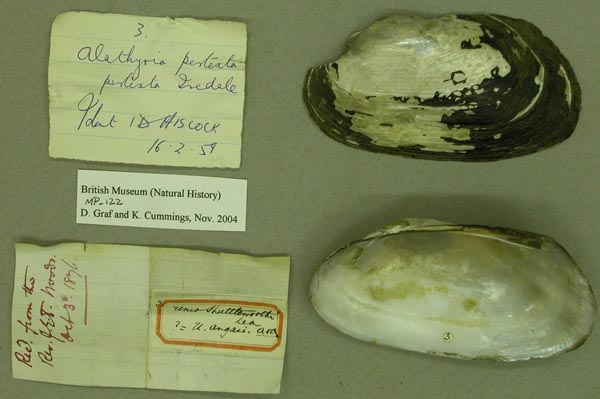 3.
Alathyria pertexta
pertexta Iredale
Ident ID HISCOCK
16.2.59
British Museum (Natural History)
MP-122
D. Graf and K. Cummings, Nov. 2004
Rec'd. from the
Rev. J.E.T. Woods.
Oct 3d. 1876.
Unio Shuttleworthi
Lea
? = U. angasi.